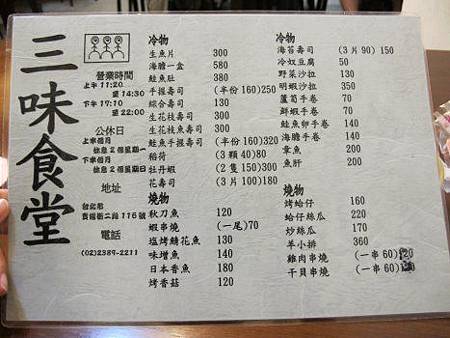 三味食堂
營業時間
上午11:20
至14:30
下午17:10
至22:00
公休日
上半個月
休息2個星期一
下半個月
休息2個星期日
地址
台北市
貴陽街二段116號
電話
(02)2389-2211
冷物
生魚片 300
海膽一盒 580
鮭魚肚 380
手握壽司 (半份160)250
綜合壽司 130
生花枝壽司 200
生花枝魚壽司 200
鮭魚手握壽司 (半份160)320
稻荷 (3顆40)80
牡丹蝦 (2隻150)300
花壽司 (3片100)180
燒物
秋刀魚 120
蝦串燒 (一尾)70
塩烤鯖花魚 130
味增魚 140
日本香魚 180
烤香菇 120
冷物
海苔壽司 (3片90)150
冷奴豆腐 50
野菜沙拉 130
明蝦沙拉 350
蘆筍手卷 70
鮮蝦手卷 70
鮭魚卵手卷 140
海膽手卷 140
章魚 200
魚肝 200
燒物
烤蛤仔 160
蛤仔絲瓜 220
炒絲瓜 170
羊小排 360
雞肉串燒 (一串60)120
干貝串燒 (一串60)